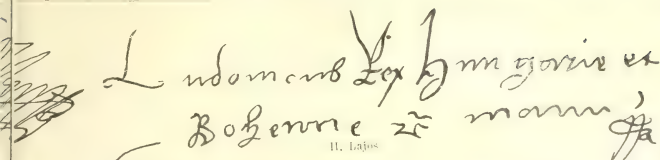 Ludovicus Rex Hungarie et
Bohemie etc manu ppa
II. Lajos